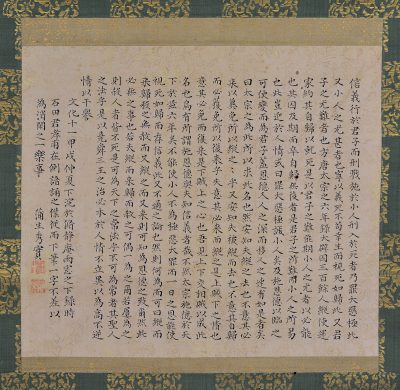 信義行於君子而刑戮施於小人刑入於死者乃罪大惡極此
又小人之尤甚者也寧以義死不苟幸生而視死如歸此又君
子之尤難者也方唐太宗之六年錄大辟囚三百餘人縱使還
家約其自歸以就死是以君子之難能期小人之尤者以必能
也其囚及期而卒自歸無後者是君子之所難而小人之所易
也此豈近於人情哉或曰罪大惡極誠小人矣及施恩德以臨之
可使變而為君子蓋恩德入人之深而移人之速有如是者矣
曰太宗之為此所以求此名也然安知夫縱之去也不意其必
來以冀免所以縱之乎又安知夫被縱而去也不意其自歸
而必獲免所以復來乎夫意其必來而縱之是上賊下之情也
意其必免而復來是下賊上之心也吾見上下交相賊以成此
名也烏有所謂施恩德與夫知信義者哉不然太宗施德於天
下於茲六年矣不能使小人不為極惡大罪而一日之恩能使
視死如歸而存信義此又不通之論也然則何為而可曰縱而
來歸殺之無赦而又縱之而又來則可知為恩德之致爾然此
必無之事也若夫縱而來歸而赦之可偶一為之爾若屢為之
則殺人者皆不死是可為天下之常法乎不可為常者其聖人
之法乎是以堯舜三王之治必本於人情不立異以為高不逆
情以干譽
文化十一甲戌仲夏下浣於脩靜庵雨窓之下錄時
石田君孝在側而下筆一字不差以
為消閑之一樂事 蒲生秀實